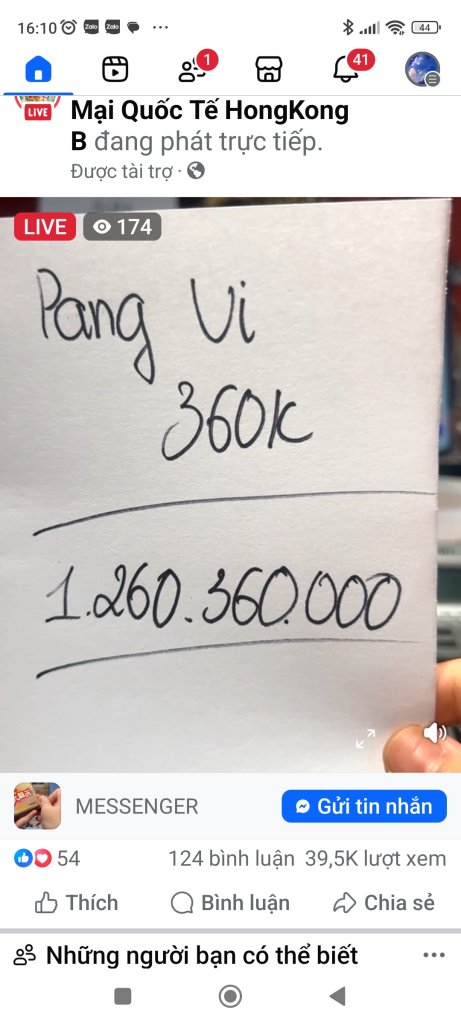 16:10 Zalo Zalo ... 44
1 41
LIVE Mại Quốc Tế HongKong
B đang phát trực tiếp.
Được tài trợ ·
LIVE 174
Pang Vi
360K
1.260.360.000
MESSENGER Gửi tin nhắn
54 124 bình luận 39,5K lượt xem
Thích Bình luận Chia sẻ
Những người bạn có thể biết ...